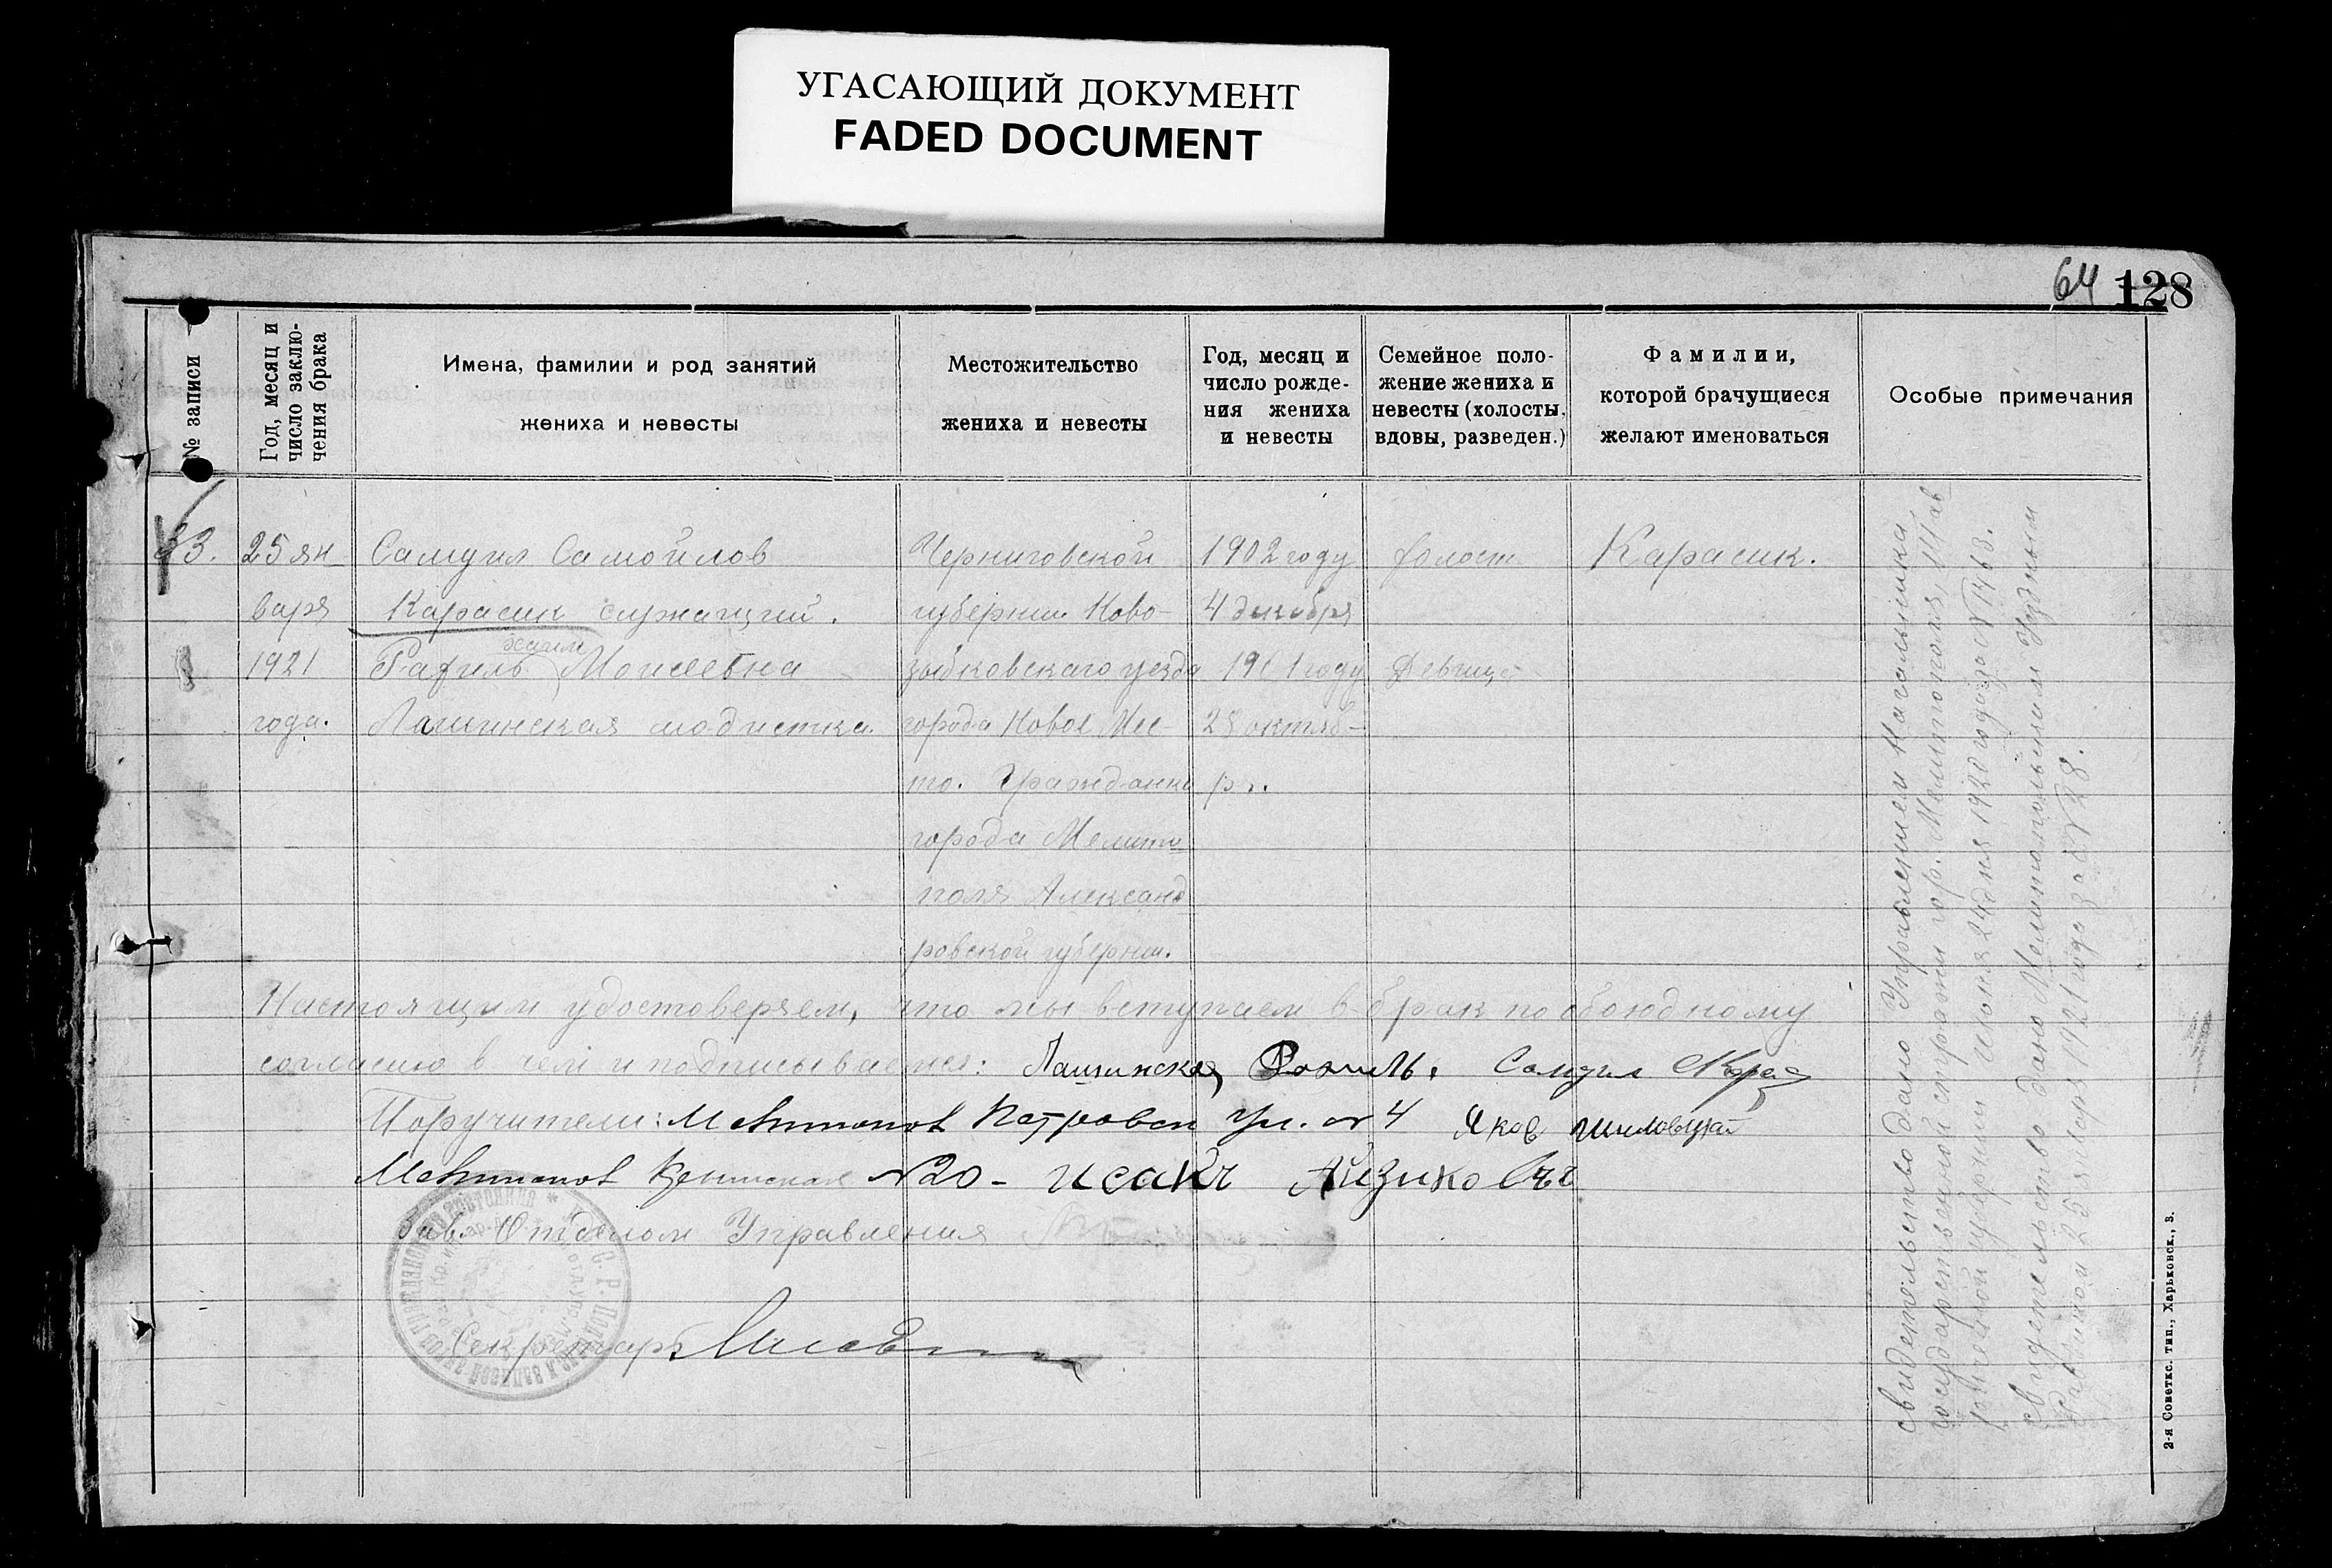 УГАСАЮЩИЙ ДОКУМЕНТ
FADED DOCUMENT
64 128
№ записи
Год, месяц и
число заклю-
чения брака
Имена, фамилии и род занятий
жениха и невесты
Местожительство
жениха и невесты
Год, месяц и
число рожде-
ния жениха
и невесты
Семейное поло-
жение жениха и
невесты (холосты,
вдовы, разведен.)
Фамилии,
которой брачущиеся
желают именоваться
Особые примечания
33.
25 ян
варя
1921
года.
Самуил Самойлов
Карасик служащий.
Хаим
Рахиль Моисеевна
Лашинская модистка.
Черниговской
губернии Ново-
зыбковскаго уезда
города Новое Мес-
то. Гражданка
города Мелито
поля Александ
ровской губернии.
1902 году
4 декабря
1901 году
28 октяб-
ря.
холост
Девица
Карасик.
свидетельство дано Управлением Начальника
государственной стражи гор. Мелитополя, Тав
рической губернии июня 24 дня 1920 года за № 1463.
свидетельство дано Мелитопольским Уездным
Раввином 25 января 1921 года за № 28.
Настоящим удостоверяем, что мы вступаем в брак по обоюдному
согласию в чем и подписываемся: Лашинская Рахиль. Самуил Карас
Поручители: Мелитополь Петровск ул. № 4 Яков
Мелитополь № 20 - Исакъ Айзиковъ
Зав. Отделом Управления
Секретарь
2-я Советск. тип., Харьковск., 3.